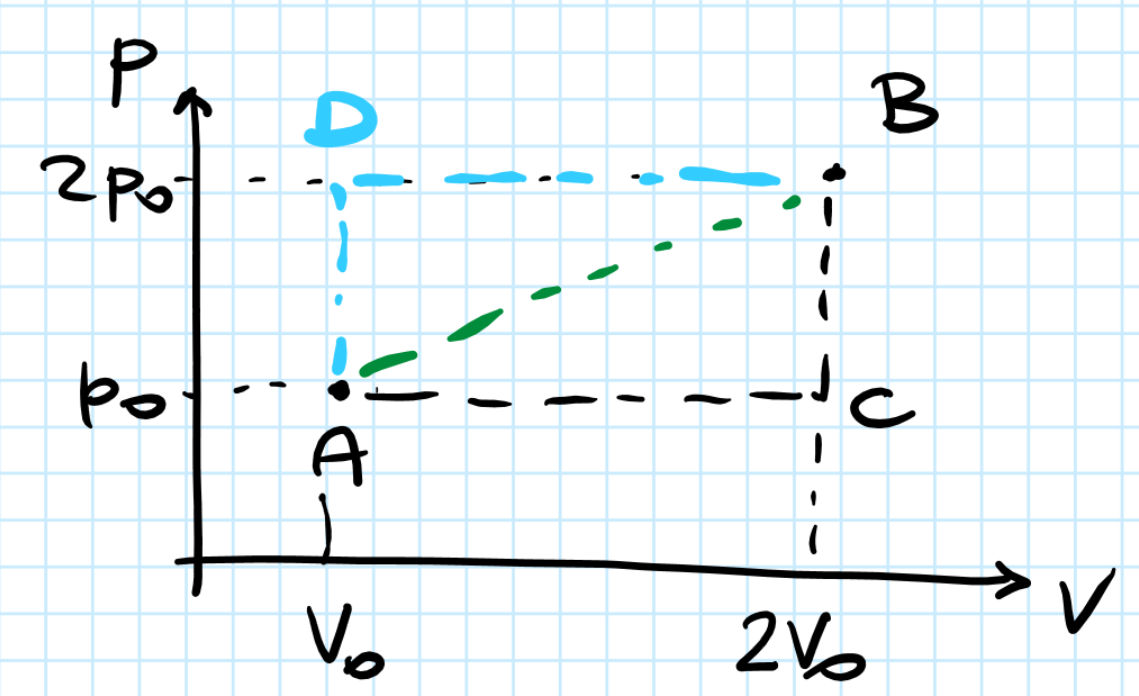 P
D
B
2p₀
p₀
A
C
V₀
2V₀
V